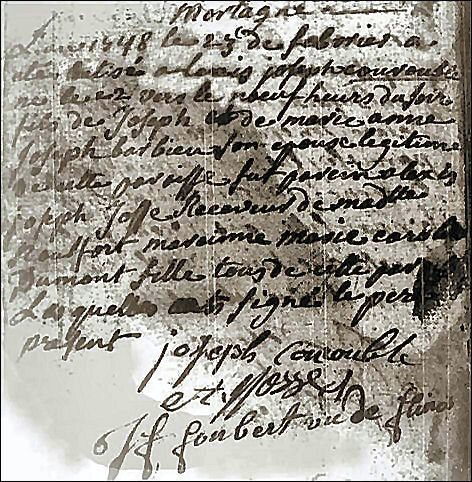 Mortagne
1748 le 23 de febvrier a
este batisé alexis joseph couvouble
ne le 22 vers le neuf heurs du soir
fils de Joseph et de marie anne
Joseph barbieu son epouse legitime
de cette paroisse fut parein alexis
joseph Josse Receveur de mad
Beaufort mareinne marie
Dumont fille tous de cette paroisse
Lesquelles ont signé le pere
present
joseph couvouble
et Josse
J f foubert vic de flines